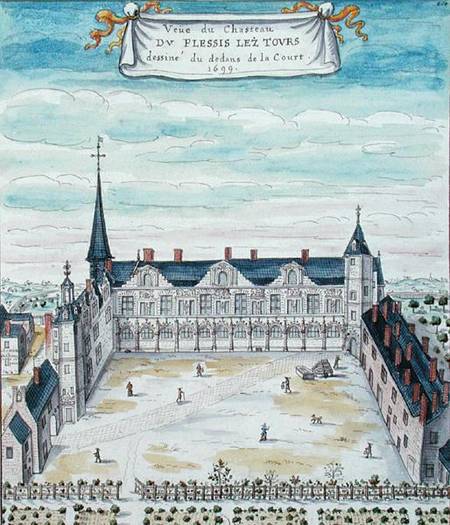 Veue du Chasteau
DV PLESSIS LEZ TOVRS
dessiné du dedans de la Court.
1699.